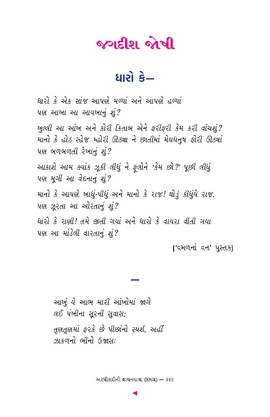 જગદીશ જોષી
ધારો કે—
ધારો કે એક સાંજ આપણે મળ્યાં અને આપણે હળ્યાં
પણ આખા આ આયખાનું શું?
ખુલ્લી આ આંખ અને કોરી કિતાબ એને ફરીફરી કેમ કરી વાંચશું?
માનો કે હોઠ સ્હેજ મ્હોરી ઊઠ્યા ને છાતીમાં મેઘધનુષ ફોરી ઊઠ્યાં
પણ બળબળતી રેખાનું શું?
આકાશે આમ ક્યાંક ઝૂકી લીધું ને ફૂલોને 'કેમ છો?' પૂછી લીધું
પણ મૂંગી આ વેદનાનું શું?
માનો કે આપણે ખાધું-પીધું અને માનો કે રાજ! થોડું કીધુંયે રાજ.
પણ ઝૂરતા આ ઓરતાનું શું?
ધારો કે રાણી! તમે જીતી ગયાં અને ધારો કે વાયરા વીતી ગયા
પણ આ માંડેલી વારતાનું શું?
['વમળનાં વન' પુસ્તક]
—
આખું યે આભ મારી આંખોમાં જાગે
લઈ પંખીના સૂરની સુવાસ;
તૃણતૃણમાં ફરકે છે પીંછાંનો સ્પર્શ, અહીં
ઝાકળનો ભીનો ઉજાસ: